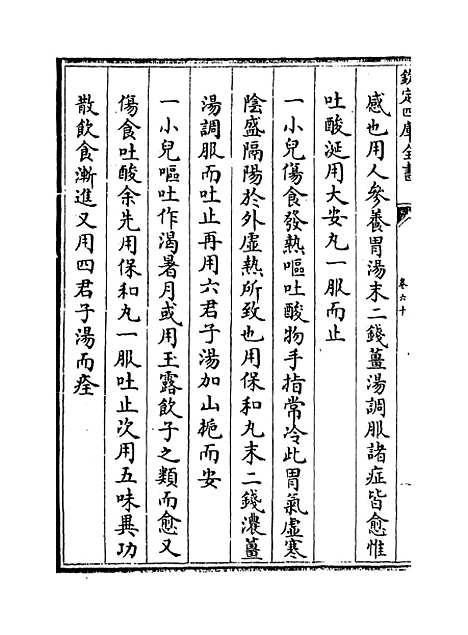 欽定四庫全書
卷六十
感也用人參養胃湯末二錢薑湯調服諸症皆愈惟
吐酸涎用大安丸一服而止
一小兒傷食發熱嘔吐酸物手指常冷此胃氣虛寒
陰盛隔陽於外虛熱所致也用保和丸末二錢濃薑
湯調服而吐止再用六君子湯加山梔而安
一小兒嘔吐作渴暑月或用玉露飲子之類而愈又
傷食吐酸余先用保和丸一服吐止次用五味異功
散飲食漸進又用四君子湯而痊